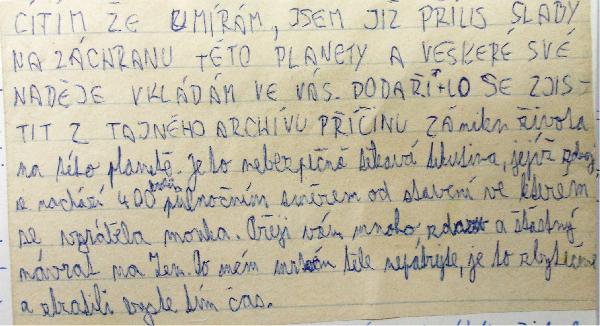 CÍTÍM ŽE UMÍRÁM, JSEM JIŽ PŘÍLIŠ SLABÝ
NA ZÁCHRANU TÉTO PLANETY A VEŠKERÉ SVÉ
NADĚJE VKLÁDÁM VE VÁS. PODAŘILO SE ZJIS-
TIT Z TAJNÉHO ARCHÍVU PŘÍČINU ZÁniku života
na této planetě. Je to nebezpečná tekutina, jejíž zdroj
se nachází 400 kroků půlnočním směrem od stavení ve kterém
se vyráběla mouka. Přeji vám mnoho zdaru a šťastný
návrat na Zem. Po mém mrtvém těle nepátrejte, je to zbytečné
a ztratili byste tím čas.